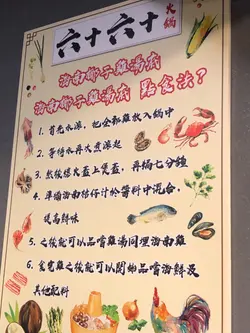 六十六十
火鍋
海南椰子雞湯底
海南椰子雞湯底 點食法？
1. 首先水滾，把全部雞放入鍋中
2. 等待水再次煲滾起
3. 然後爆火蓋上煲蓋，再焗七分鐘
4. 準備海南桔仔汁於醬料中混合，
提高鮮味
5. 之後就可以品嚐雞湯同埋海南雞
6. 食完雞之後就可以開始品嚐海鮮及
其他配料